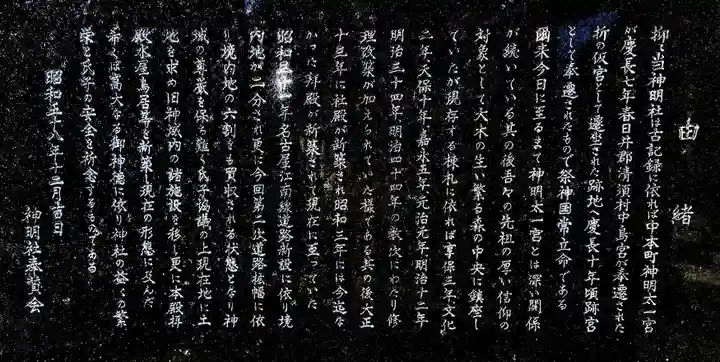 由緒
抑々当神明社は古記録に依れば中本町神明太一宮
が慶長七年春日井郡清須村中島宮が奉遷された
折の仮宮として遷祀された跡地へ慶長十年頃跡宮
として奉遷されたもので祭神国常立命である
國来今日に至るまで神明太一宮とは深い関係
が続いている其の後吾々の先祖の厚い信仰の
対象として大木の生い繁る森の中央に鎮座し
ていたが現存する棟札に依れば享保三年文化
二年天保十年嘉永五年元治元年明治十二年
明治三十四年明治四十四年の数次にわたり修
理改築が加えられていた様である其の後大正
十三年に社殿が新築され昭和三年には今迄な
かった拝殿が新築されて現在に至っていた
昭和 年名古屋江南線道路新設に依り境
内地が二分され更に今回第二次道路拡幅に依
り境内地の六割をも買収される状態となり神
域の尊厳を保ち難く氏子協議の上現在地に土
地を求め旧神域内の諸施設を移し更に本殿拝
殿水屋鳥居等を新築し現在の形態に及んだ
希くは高大なる御神徳に依り神社の益々の繁
栄と氏子の安全を祈念するものである
昭和五十八年十二月吉日
神明社奉賛会